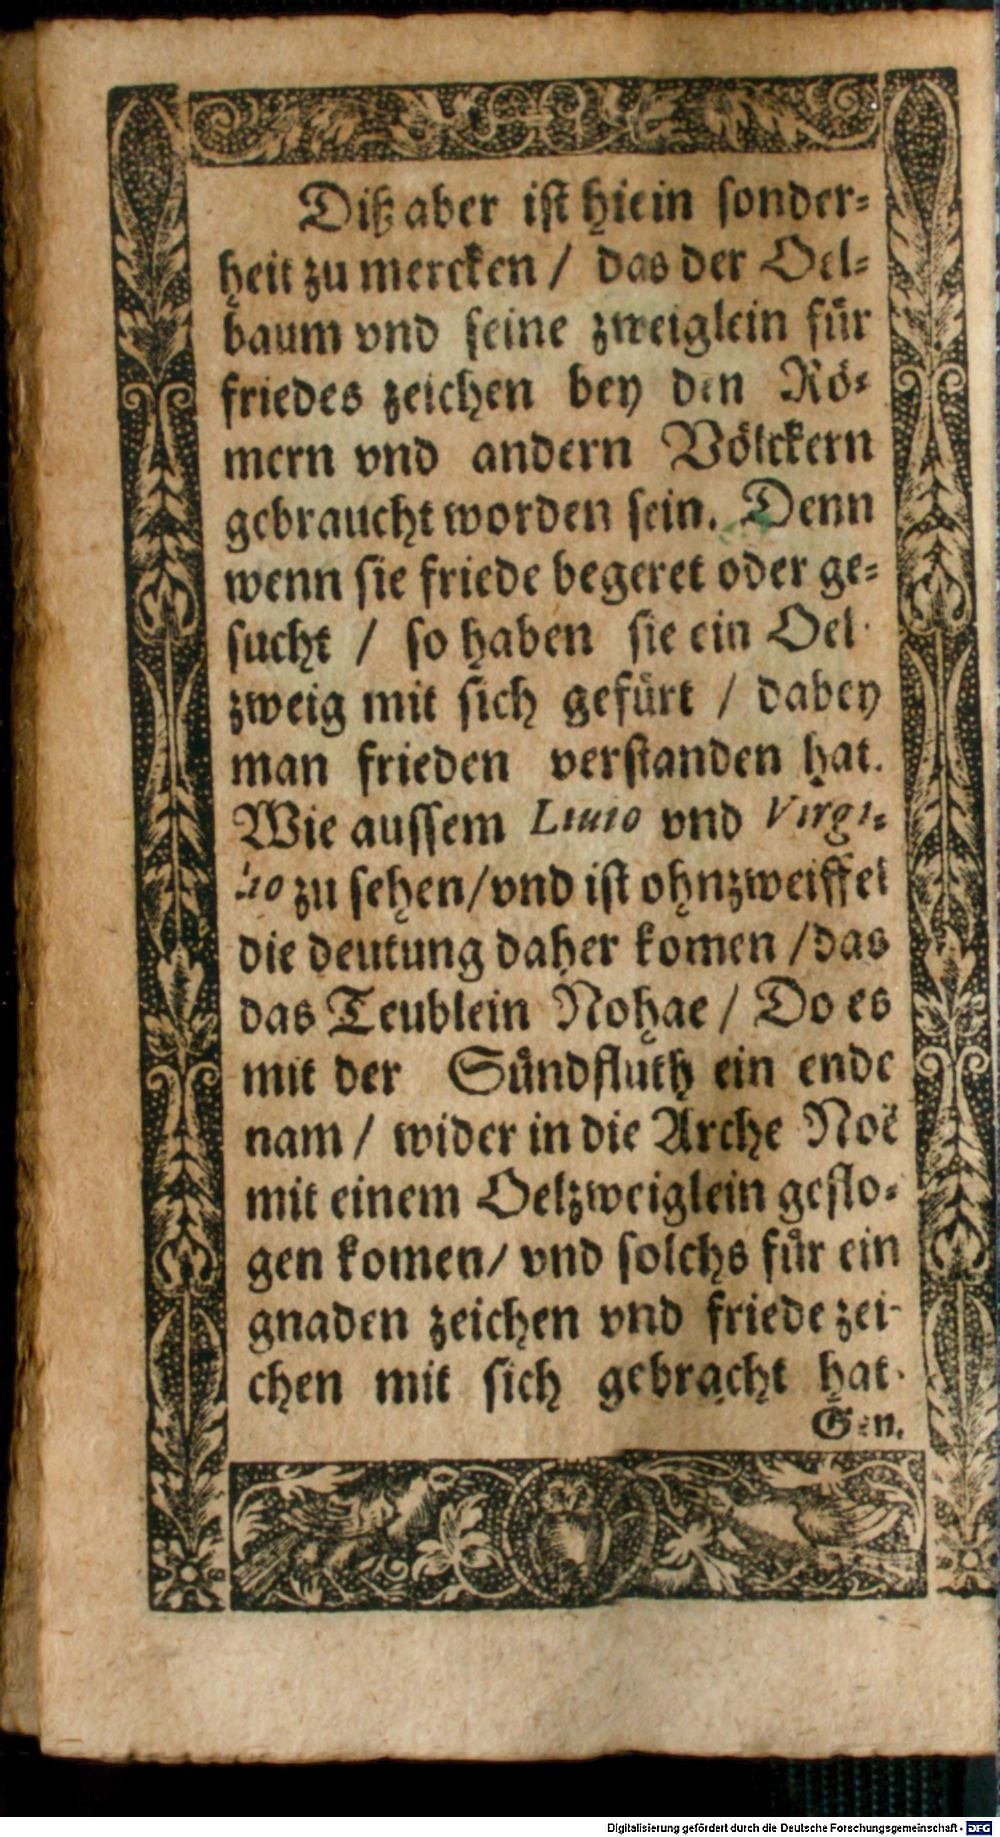 Diß aber ist hie in sonder-
heit zu mercken / das der Oel-
baum vnd seine zweiglein für
friedes zeichen bey den Rö-
mern vnd andern Völckern
gebraucht worden sein. Denn
wenn sie friede begeret oder ge-
sucht / so haben sie ein Oel-
zweig mit sich gefürt / dabey
man frieden verstanden hat.
Wie aussem Liuio vnd Virgi-
lio zu sehen / vnd ist ohnzweiffel
die deutung daher komen / das
das Teublein Nohae / Do es
mit der Sündfluth ein ende
nam / wider in die Arche Noë
mit einem Oelzweiglein geflo-
gen komen / vnd solchs für ein
gnaden zeichen vnd friede zei-
chen mit sich gebracht hat.
Gen.
Digitalisierung gefördert durch die Deutsche Forschungsgemeinschaft - DFG